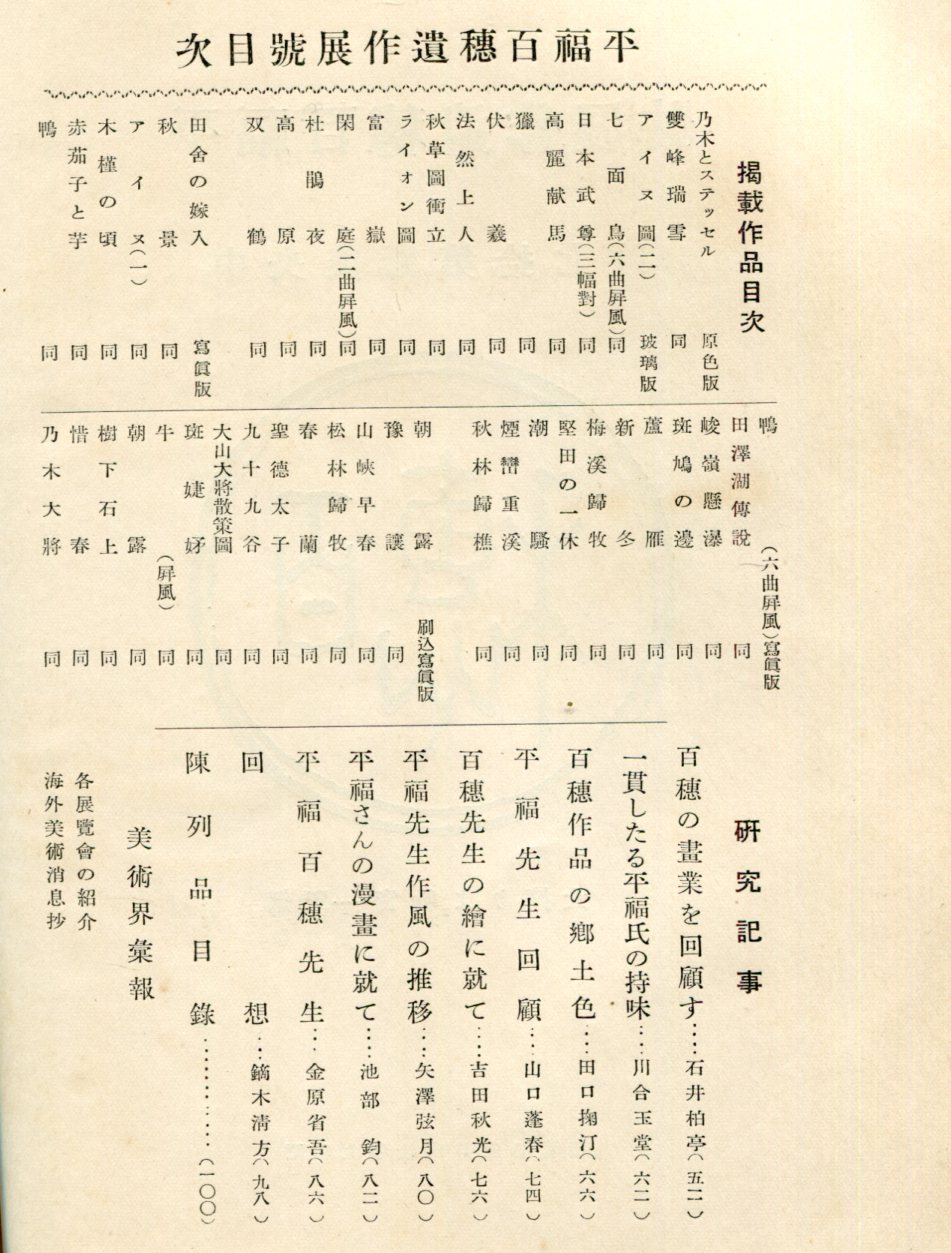 平福百穗遺作展號目次
揭載作品目次
乃木とステッセル 原色版
雙峰瑞雪 同
アイヌ圖(二) 玻璃版
七面鳥(六曲屛風) 同
日本武尊(三幅對) 同
高麗献馬 同
獵 同
伏羲 同
法然上人 同
秋草圖衝立 同
ライオン圖 同
富嶽 同
閑庭(二曲屛風) 同
杜鵑夜 同
高原 同
双鶴 同
田舍の嫁入 寫眞版
秋景 同
アイヌ(一) 同
木槿の頃 同
赤茄子と芋 同
鴨 同
鴨(六曲屛風) 寫眞版
田澤湖傳說 同
峻嶺懸瀑 同
斑鳩の邊 同
蘆雁 同
新冬 同
梅溪歸牧 同
堅田の一休 同
潮騷 同
煙巒重溪 同
秋林歸樵 同
朝露 刷込寫眞版
豫讓 同
山峽早春 同
松林歸牧 同
春蘭 同
聖德太子 同
九十九谷 同
大山大將散策圖 同
斑婕妤 同
牛(屛風) 同
朝露 同
樹下石上 同
惜春 同
乃木大將 同
硏究記事
百穗の畫業を回顧す‥‥石井柏亭(五二)
一貫したる平福氏の持味‥‥川合玉堂(六二)
百穗作品の鄕土色‥‥田口掬汀(六六)
平福先生回顧‥‥山口蓬春(七四)
百穗先生の繪に就て‥‥吉田秋光(七六)
平福先生作風の推移‥‥矢澤弦月(八〇)
平福さんの漫畫に就て‥‥池部鈞(八二)
平福百穗先生‥‥金原省吾(八六)
回想‥‥鏑木淸方(九八)
陳列品目錄‥‥‥‥‥‥(一〇〇)
美術界彙報
各展覽會の紹介
海外美術消息抄